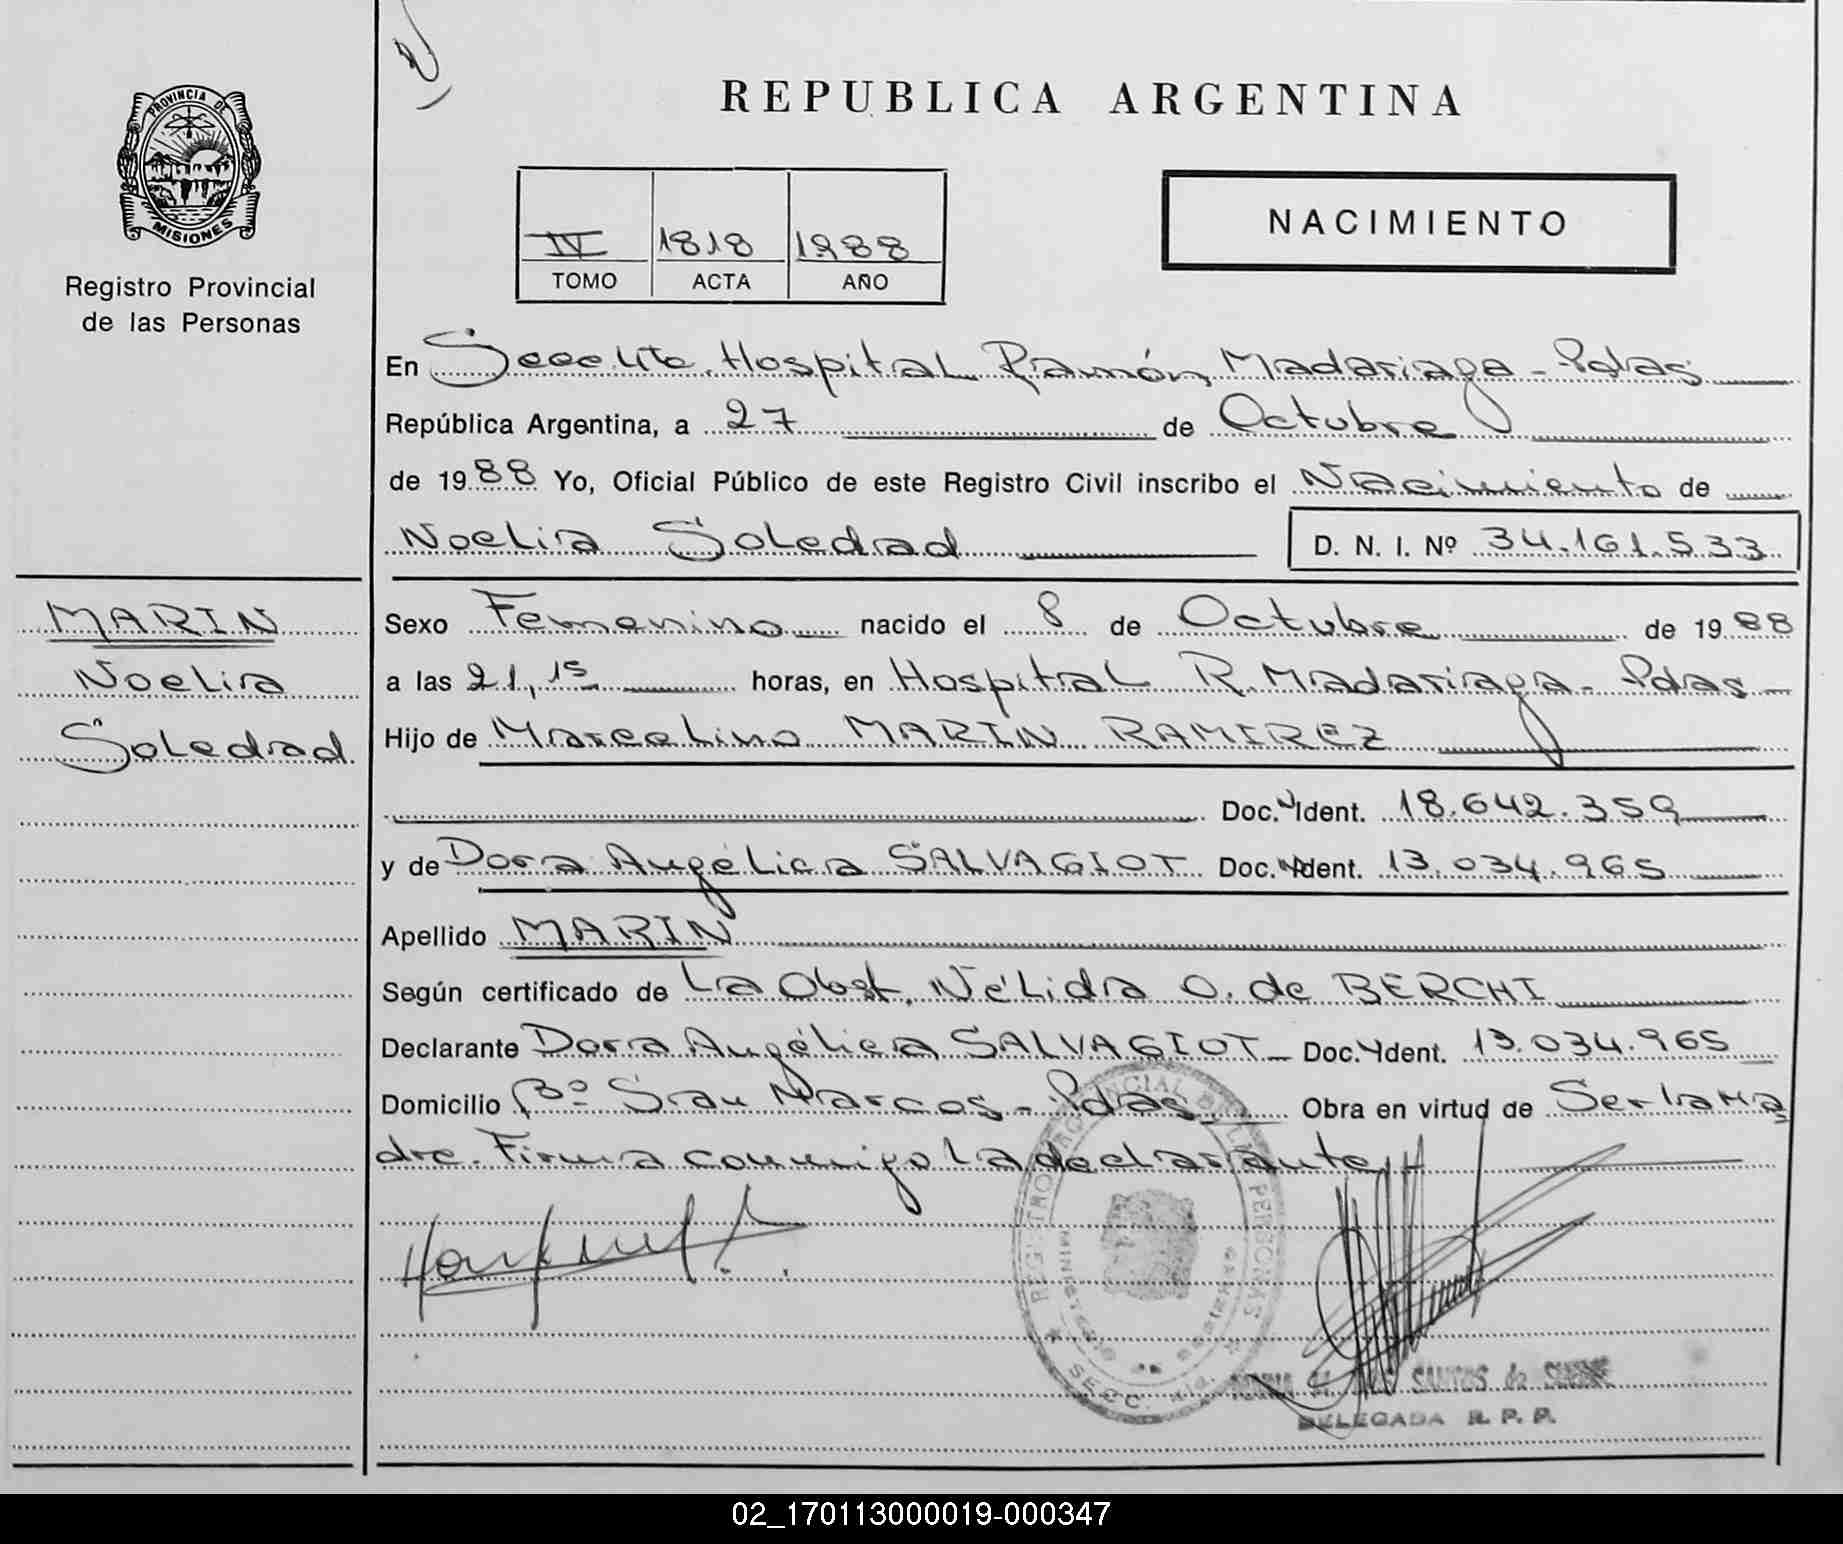 PROVINCIA DE
MISIONES
Registro Provincial
de las Personas
REPUBLICA ARGENTINA
IV 1818 1988
TOMO ACTA AÑO
NACIMIENTO
En Hospital Ramón Madariaga - Pdas
República Argentina, a 27 de Octubre
de 1988 Yo, Oficial Público de este Registro Civil inscribo el Nacimiento de
Noelia Soledad D. N. I. Nº 34.161.533
MARIN
Noelia
Soledad
Sexo Femenino nacido el 8 de Octubre de 1988
a las 21,15 horas, en Hospital R. Madariaga - Pdas
Hijo de Marcelino MARIN RAMIREZ
Doc. Ident. 18.642.359
y de Dora Angélica SALVAGIOT Doc. Ident. 13.034.965
Apellido MARIN
Según certificado de La Obst. Nélida O. de BERCHI
Declarante Dora Angélica SALVAGIOT Doc. Ident. 13.034.965
Domicilio Bº San Marcos - Pdas Obra en virtud de Ser la ma
dre. Firma conmigo la declarante
REGISTRO PROVINCIAL DE LAS PERSONAS
SECC.
SANTOS de
DELEGADA R. P. P.
02_170113000019-000347